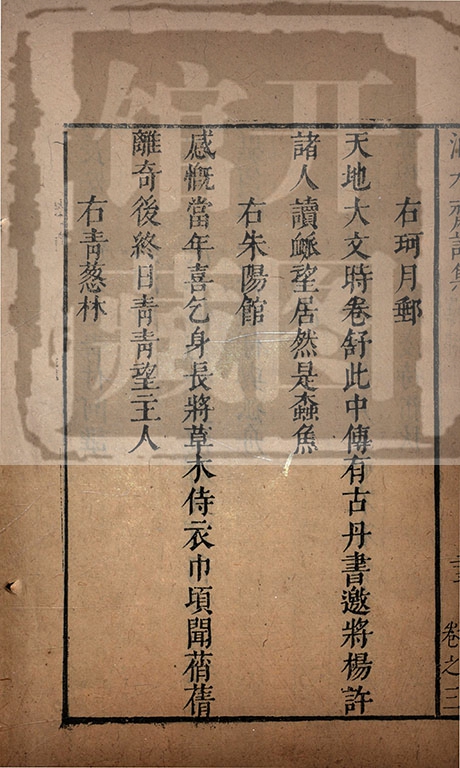 右珂月郵
天地大文時卷舒此中傳有古丹書邀將楊許
諸人讀衇望居然是蠹魚
右朱陽館
感慨當年喜乞身長將草木侍衣巾頃聞蒨
離奇後終日青青望主人
右青蔥林
卷之
開圖
館藏